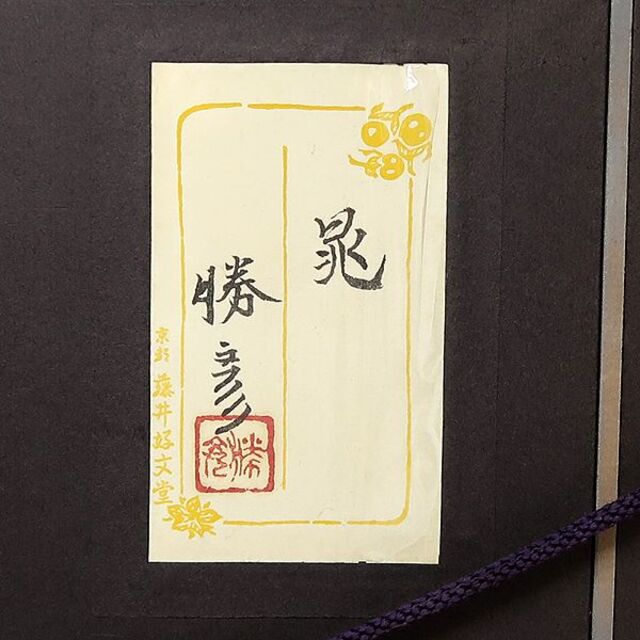 晁
勝彦
勝彦
京都 藤井好文堂